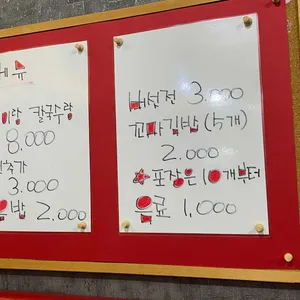 메뉴
이랑 칼국수랑
8.000
추가
3.000
밥 2.000
버섯전 3.000
꼬마김밥 (5개)
2.000
☆포장은 10개부터
음료 1,000